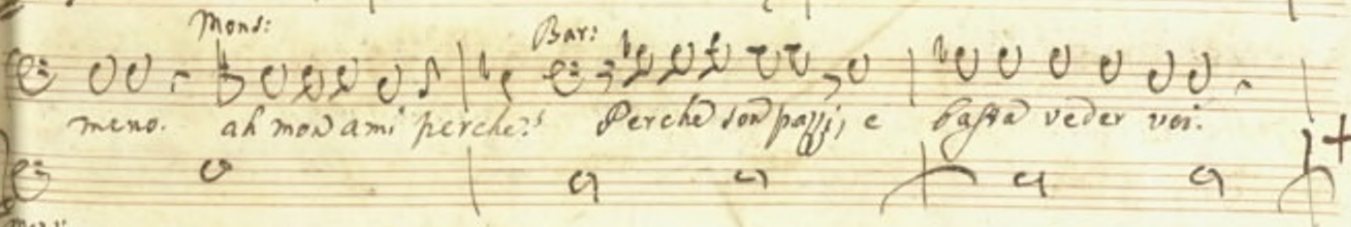 Mons: Bar:
meno. ah mon ami perche?! Perche son pazzi, e basta veder voi.